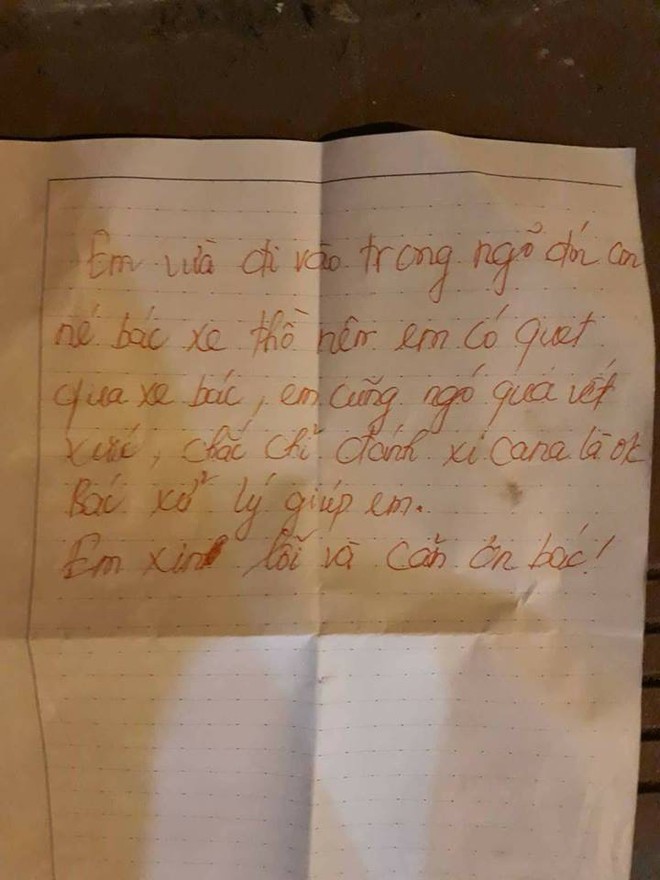 Em vừa đi vào trong ngõ đón con
né bác xe thồ nên em có quẹt
qua xe bác, em cũng ngó qua vết
xước, chắc chỉ đánh xi cana là ok
Bác xử lý giúp em.
Em xin lỗi và cản ơn bác!